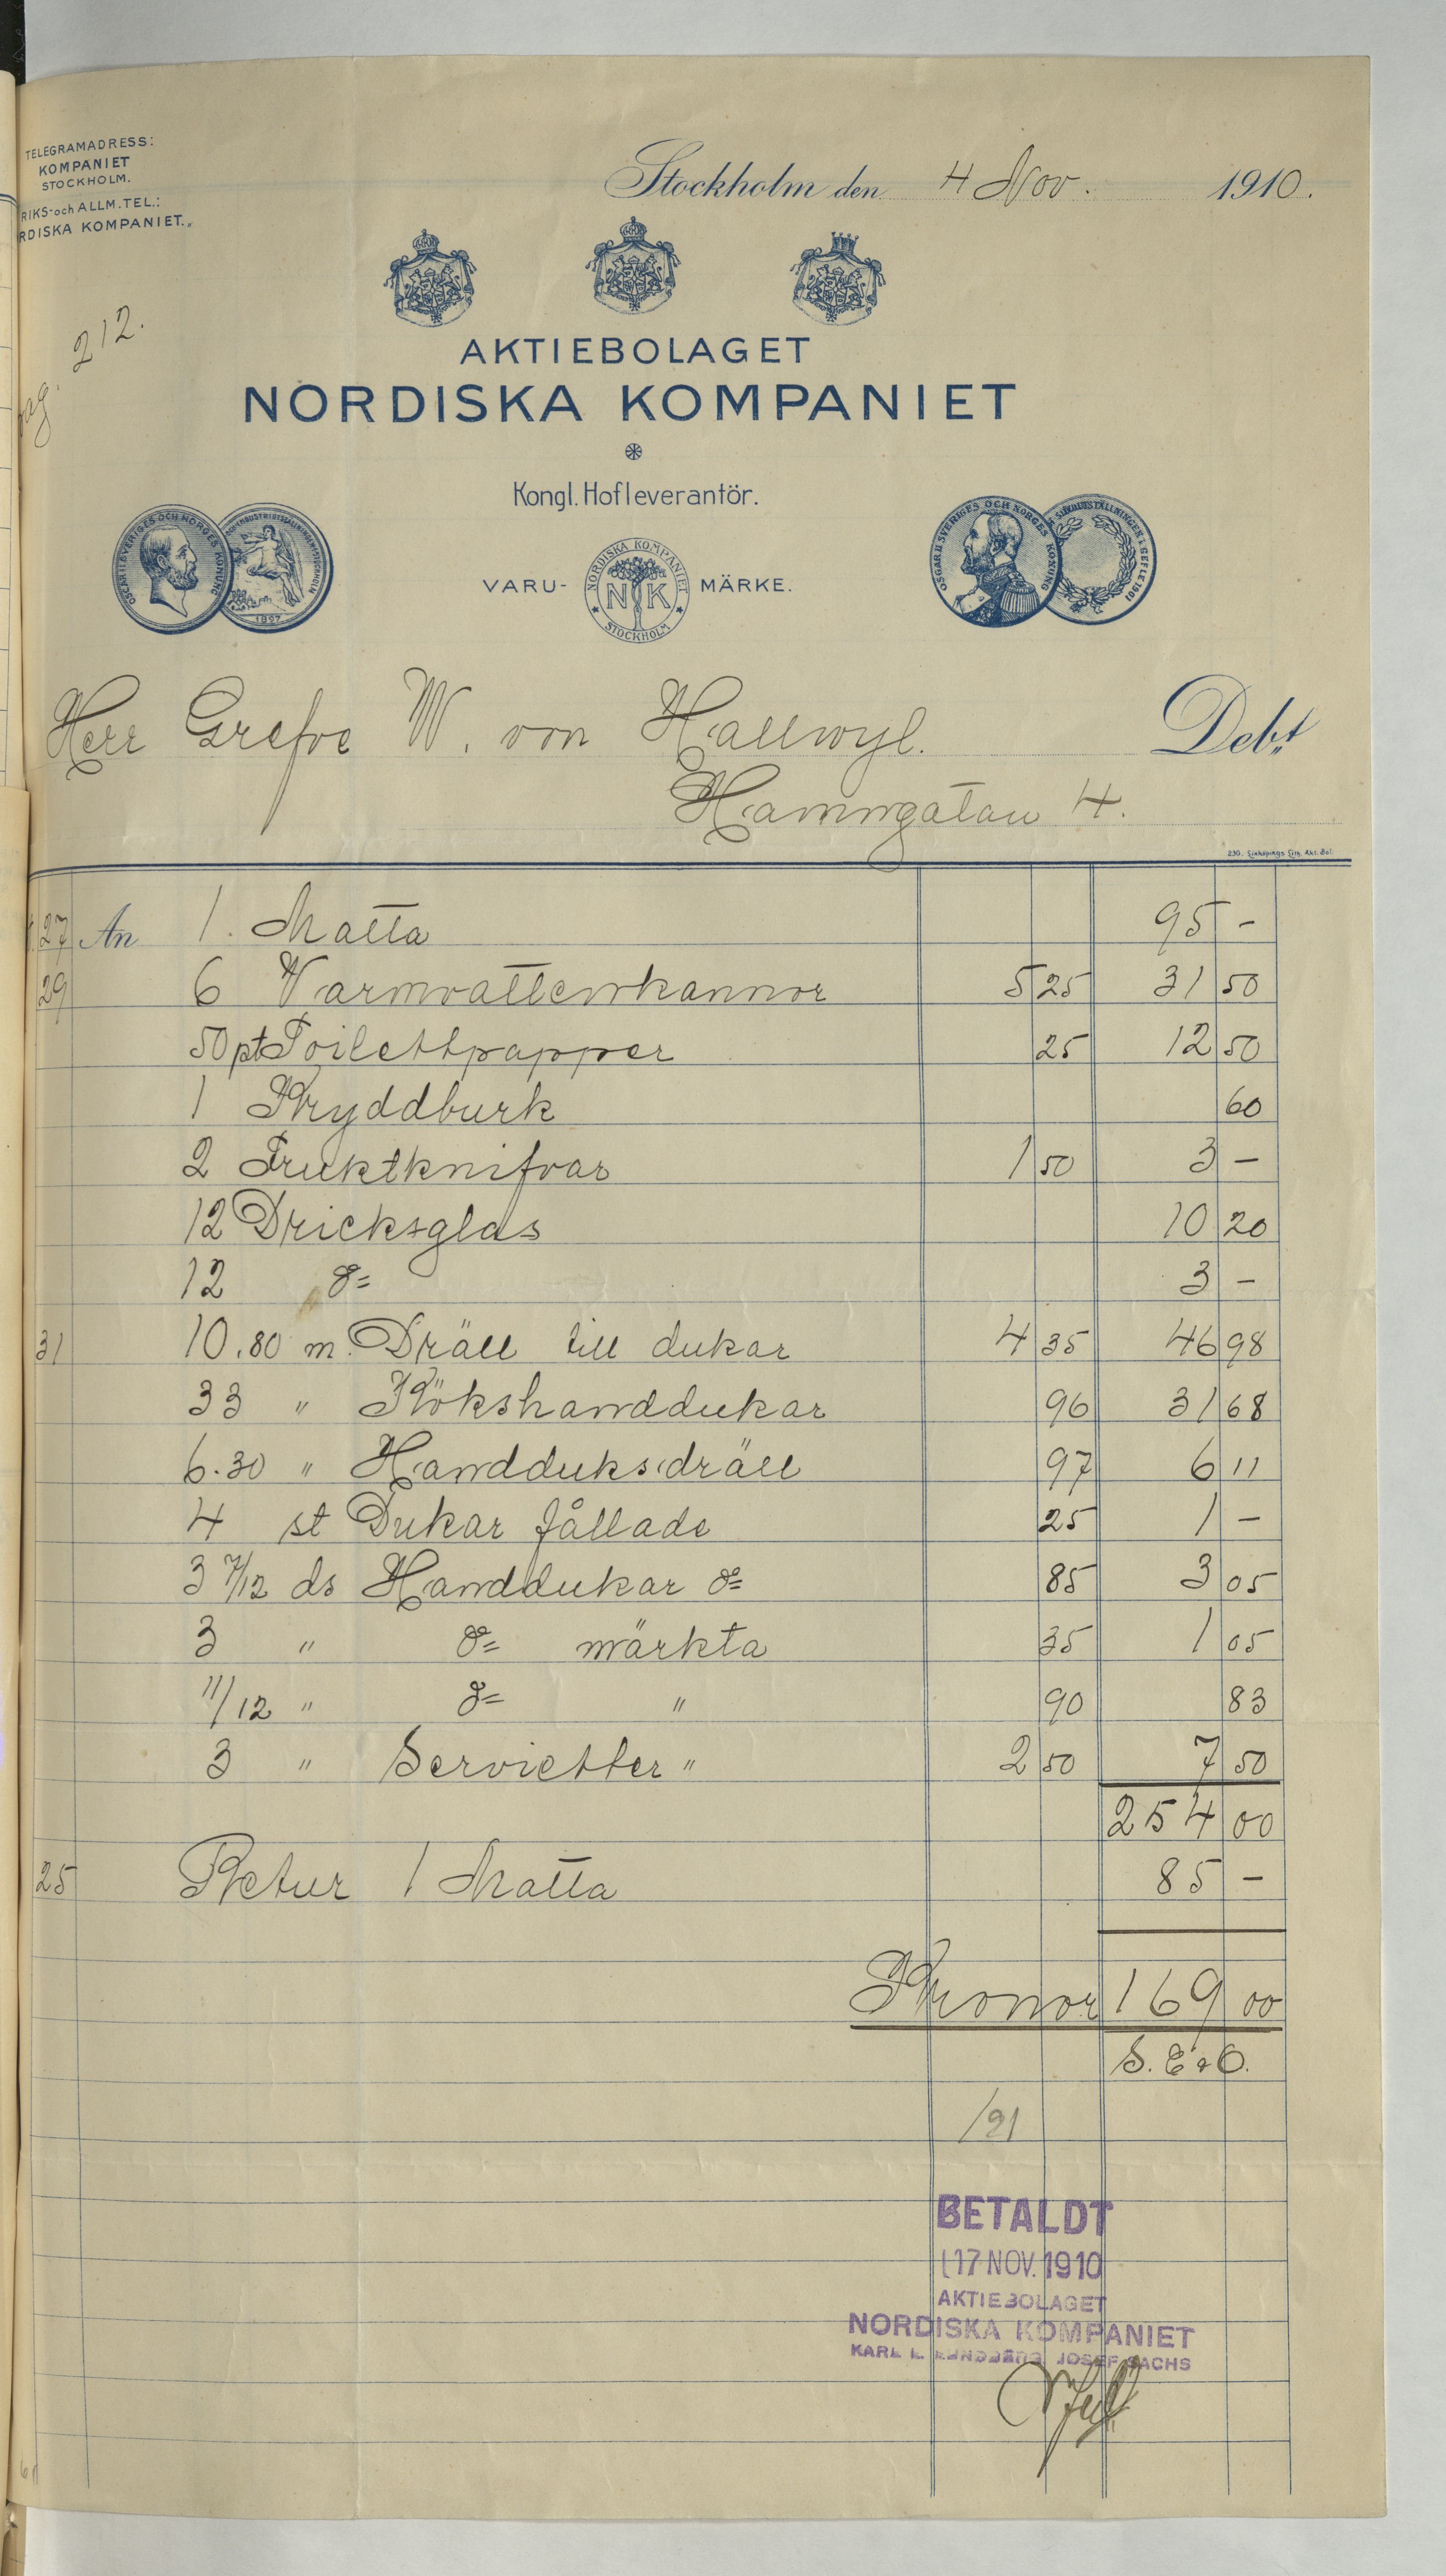 TELEGRAMADRESS:
KOMPANIET
STOCKHOLM.
RIKS- och ALLM. TEL.:
RDISKA KOMPANIET.„
Stockholm den 4 Nov. 1910.
212.
AKTIEBOLAGET
NORDISKA KOMPANIET
Kongl. Hofleverantör.
OSCAR II SVERIGES OCH NORGES KONUNG
1897
VARU-
NORDISKA KOMPANIET
NK
STOCKHOLM
MÄRKE.
OSCAR II SVERIGES OCH NORGES KONUNG
GEFLE 1901
Herr Grefve W. von Hallwyl. Debt
Hamngatan 4.
230. Linköpings Lith. Akt. Bol.
27 An 1. Matta 95 -
29 6 Varmvattenkannor 5 25 31 50
50 pt Toilettpapper 25 12 50
1 Kryddburk 60
2 Fruktknifvar 1 50 3 -
12 Dricksglas 10 20
12 d= 3 -
31 10.80 m. Dräll till dukar 4 35 46 98
33 " Kökshanddukar 96 31 68
6.30 " Handduksdräll 97 6 11
4 st Dukar fållade 25 1 -
3 7/12 ds Handdukar d= 85 3 05
3 " d= märkta 35 1 05
11/12 " d= " 90 83
3 " Servietter " 2 50 7 50
254 00
25 Retur 1 Matta 85 -
Kronor 169 00
S. E & O.
/21
BETALDT
17 NOV. 1910
AKTIEBOLAGET
NORDISKA KOMPANIET
KARL L. LUNDBERG JOSEF SACHS